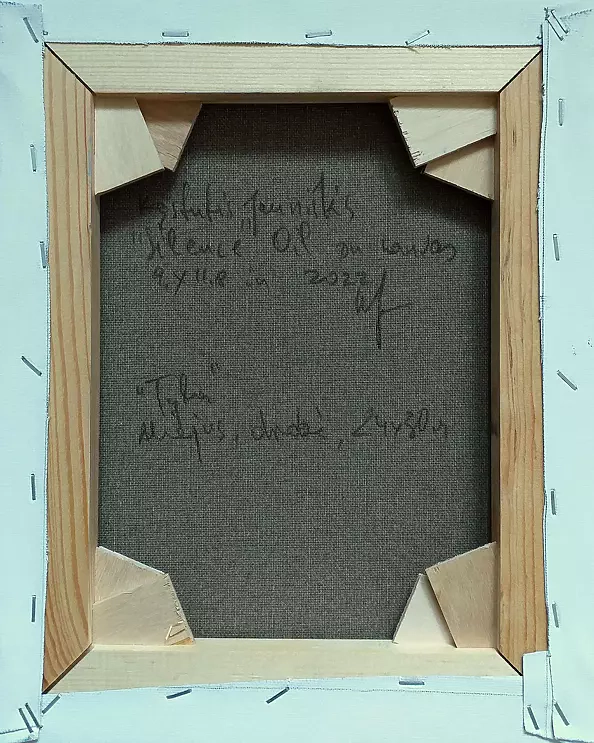 Kęstutis Jauniškis
"Silence" Oil on canvas
9,4 X 11,8 in 2022
"Tyla"
aliejus, drobė, 24x30cm